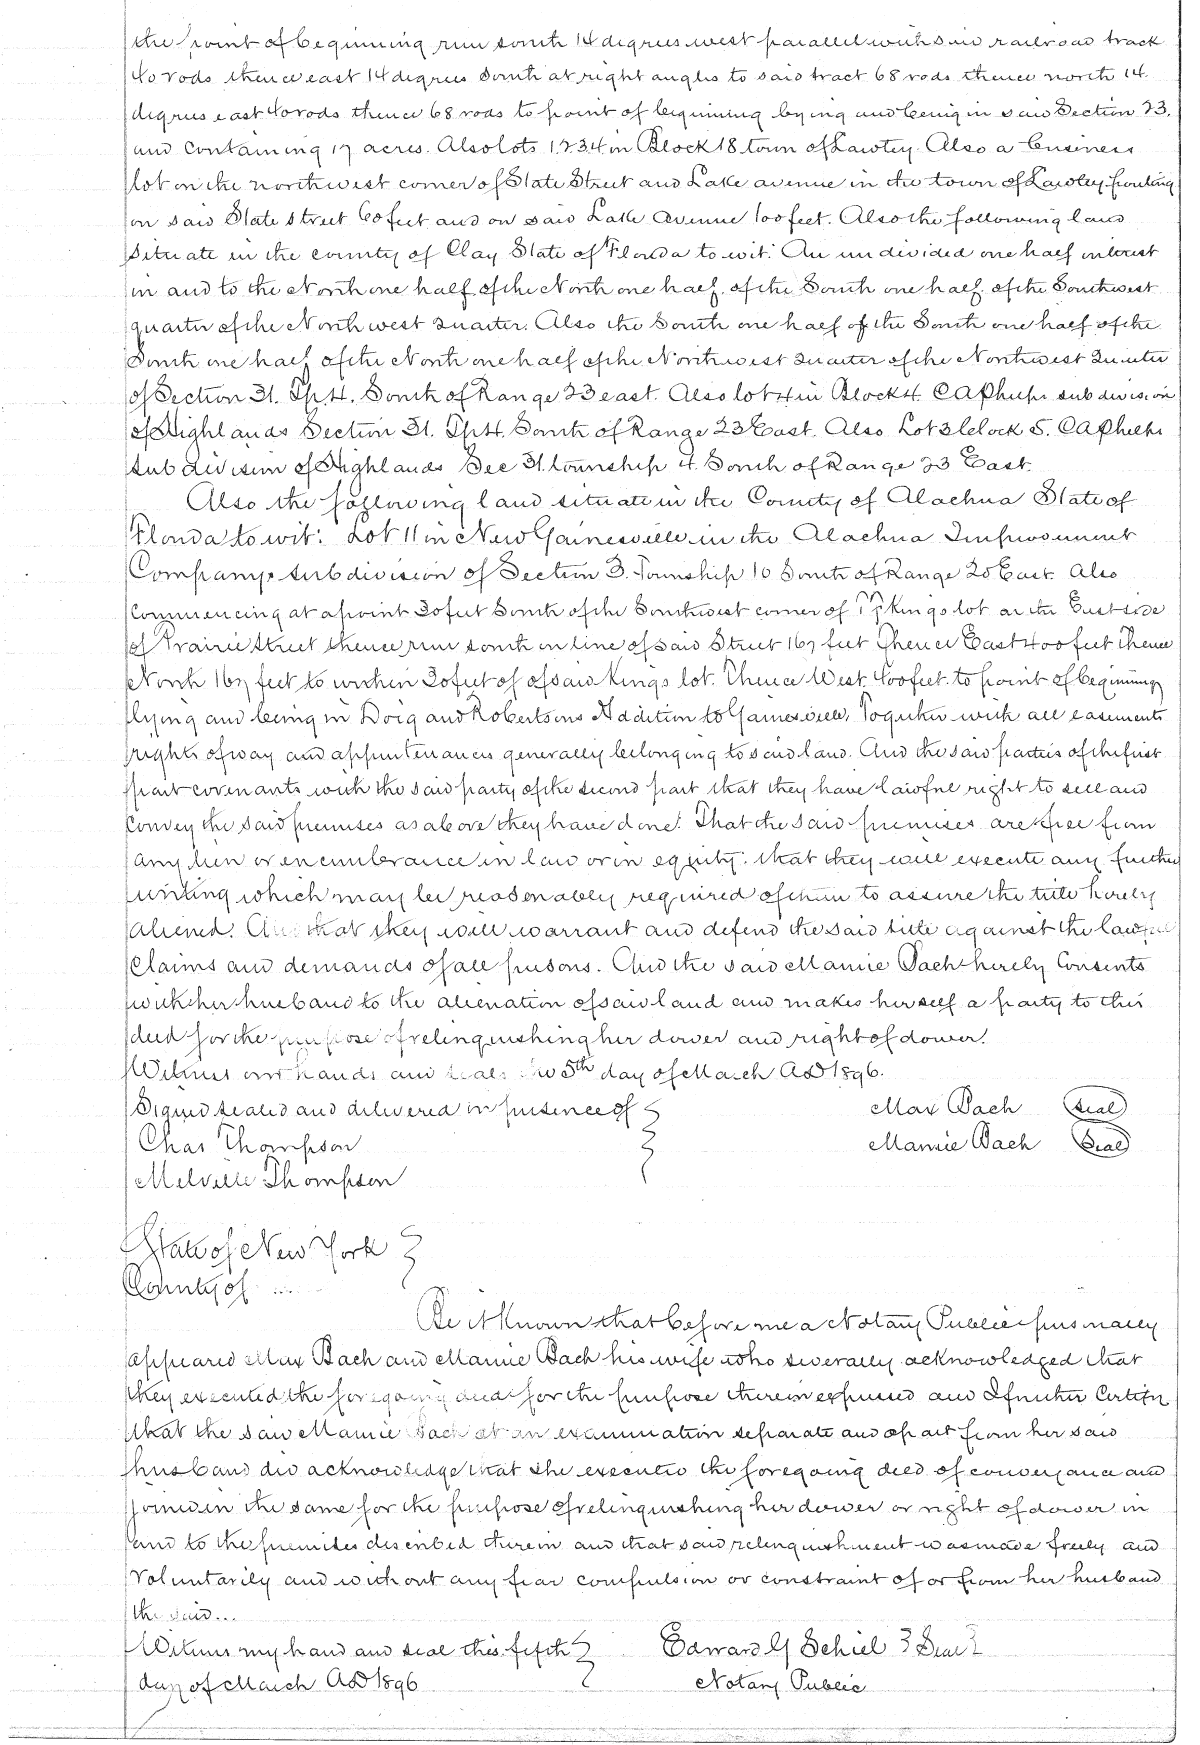 the point of beginning run south 14 degrees west parallel with said railroad track
40 rods thence east 14 degrees South at right angles to said tract 68 rods thence north 14
degrees east 40 rods thence 68 rods to point of beginning lying and being in said Section 23.
and containing 17 acres. Also lots 1.2.3.4 in Block 18 town of Lawtey. Also a business
lot on the northwest corner of State Street and Lake avenue in the town of Lawtey fronting
on said State street 60 feet and on said Lake Avenue 100 feet. Also the following land
situate in the county of Clay State of Florida to wit: An undivided one half interest
in and to the North one half of the North one half. of the South one half. of the Southwest
quarter of the Northwest quarter. Also the South one half of the South one half of the
South one half of the North one half of the Northwest quarter of the Northwest quarter
of Section 31. Tp 4. South of Range 23 east. Also lot 4 in Block 4. C A Phelps subdivision
of Highlands Section 31. Tp 4. South of Range 23 East. Also Lot 3 block 5. C A Phelps
subdivision of Highlands Sec 31. township 4. South of Range 23 East.
Also the following land situate in the County of Alachua State of
Florida to wit: Lot 11 in New Gainesville in the Alachua Improvement
Companys subdivision of Section 3. Township 10 South of Range 20 East. Also
commencing at a point 30 feet South of the Southwest corner of Kings lot on the East side
of Prairie Street thence run south on line of said Street 167 feet Thence East 400 feet Thence
North 167 feet to within 30 feet of of said Kings lot. Thence West 400 feet to point of beginning
lying and being in Doig and Robertsons Addition to Gainesville. Together with all easements
rights of way and appurtenances generally belonging to said land. And the said parties of the first
part covenants with the said party of the second part that they have lawful right to sell and
convey the said premises as above they have done. That the said premises are free from
any lien or encumbrance in law or in equity. that they will execute any further
writing which may be reasonably required of them to assure the title hereby
aliened. And that they will warrant and defend the said title against the lawful
claims and demands of all persons. And the said Mamie Bach hereby Consents
with her husband to the alienation of said land and makes herself a party to this
deed for the purpose of relinquishing her dower and right of dower.
Witness our hands and seals this 5th day of March A D 1896.
Signed sealed and delivered in presence of Max Bach Seal
Chas Thompson Mamie Bach Seal
Melville Thompson
State of New York
County of ...
Be it Known that before me a Notary Public personally
appeared Max Bach and Mamie Bach his wife who severally acknowledged that
they executed the foregoing deed for the purpose therein expressed and I further Certify
that the said Mamie Bach at an examination separate and apart from her said
husband did acknowledge that she executed the foregoing deed of conveyance and
joined in the same for the purpose of relinquishing her dower or right of dower in
and to the premises described therein and that said relinquishment was made freely and
voluntarily and without any fear compulsion or constraint of or from her husband
the said...
Witness my hand and seal this fifth Edward G Schiel Seal
day of March A D 1896 Notary Public